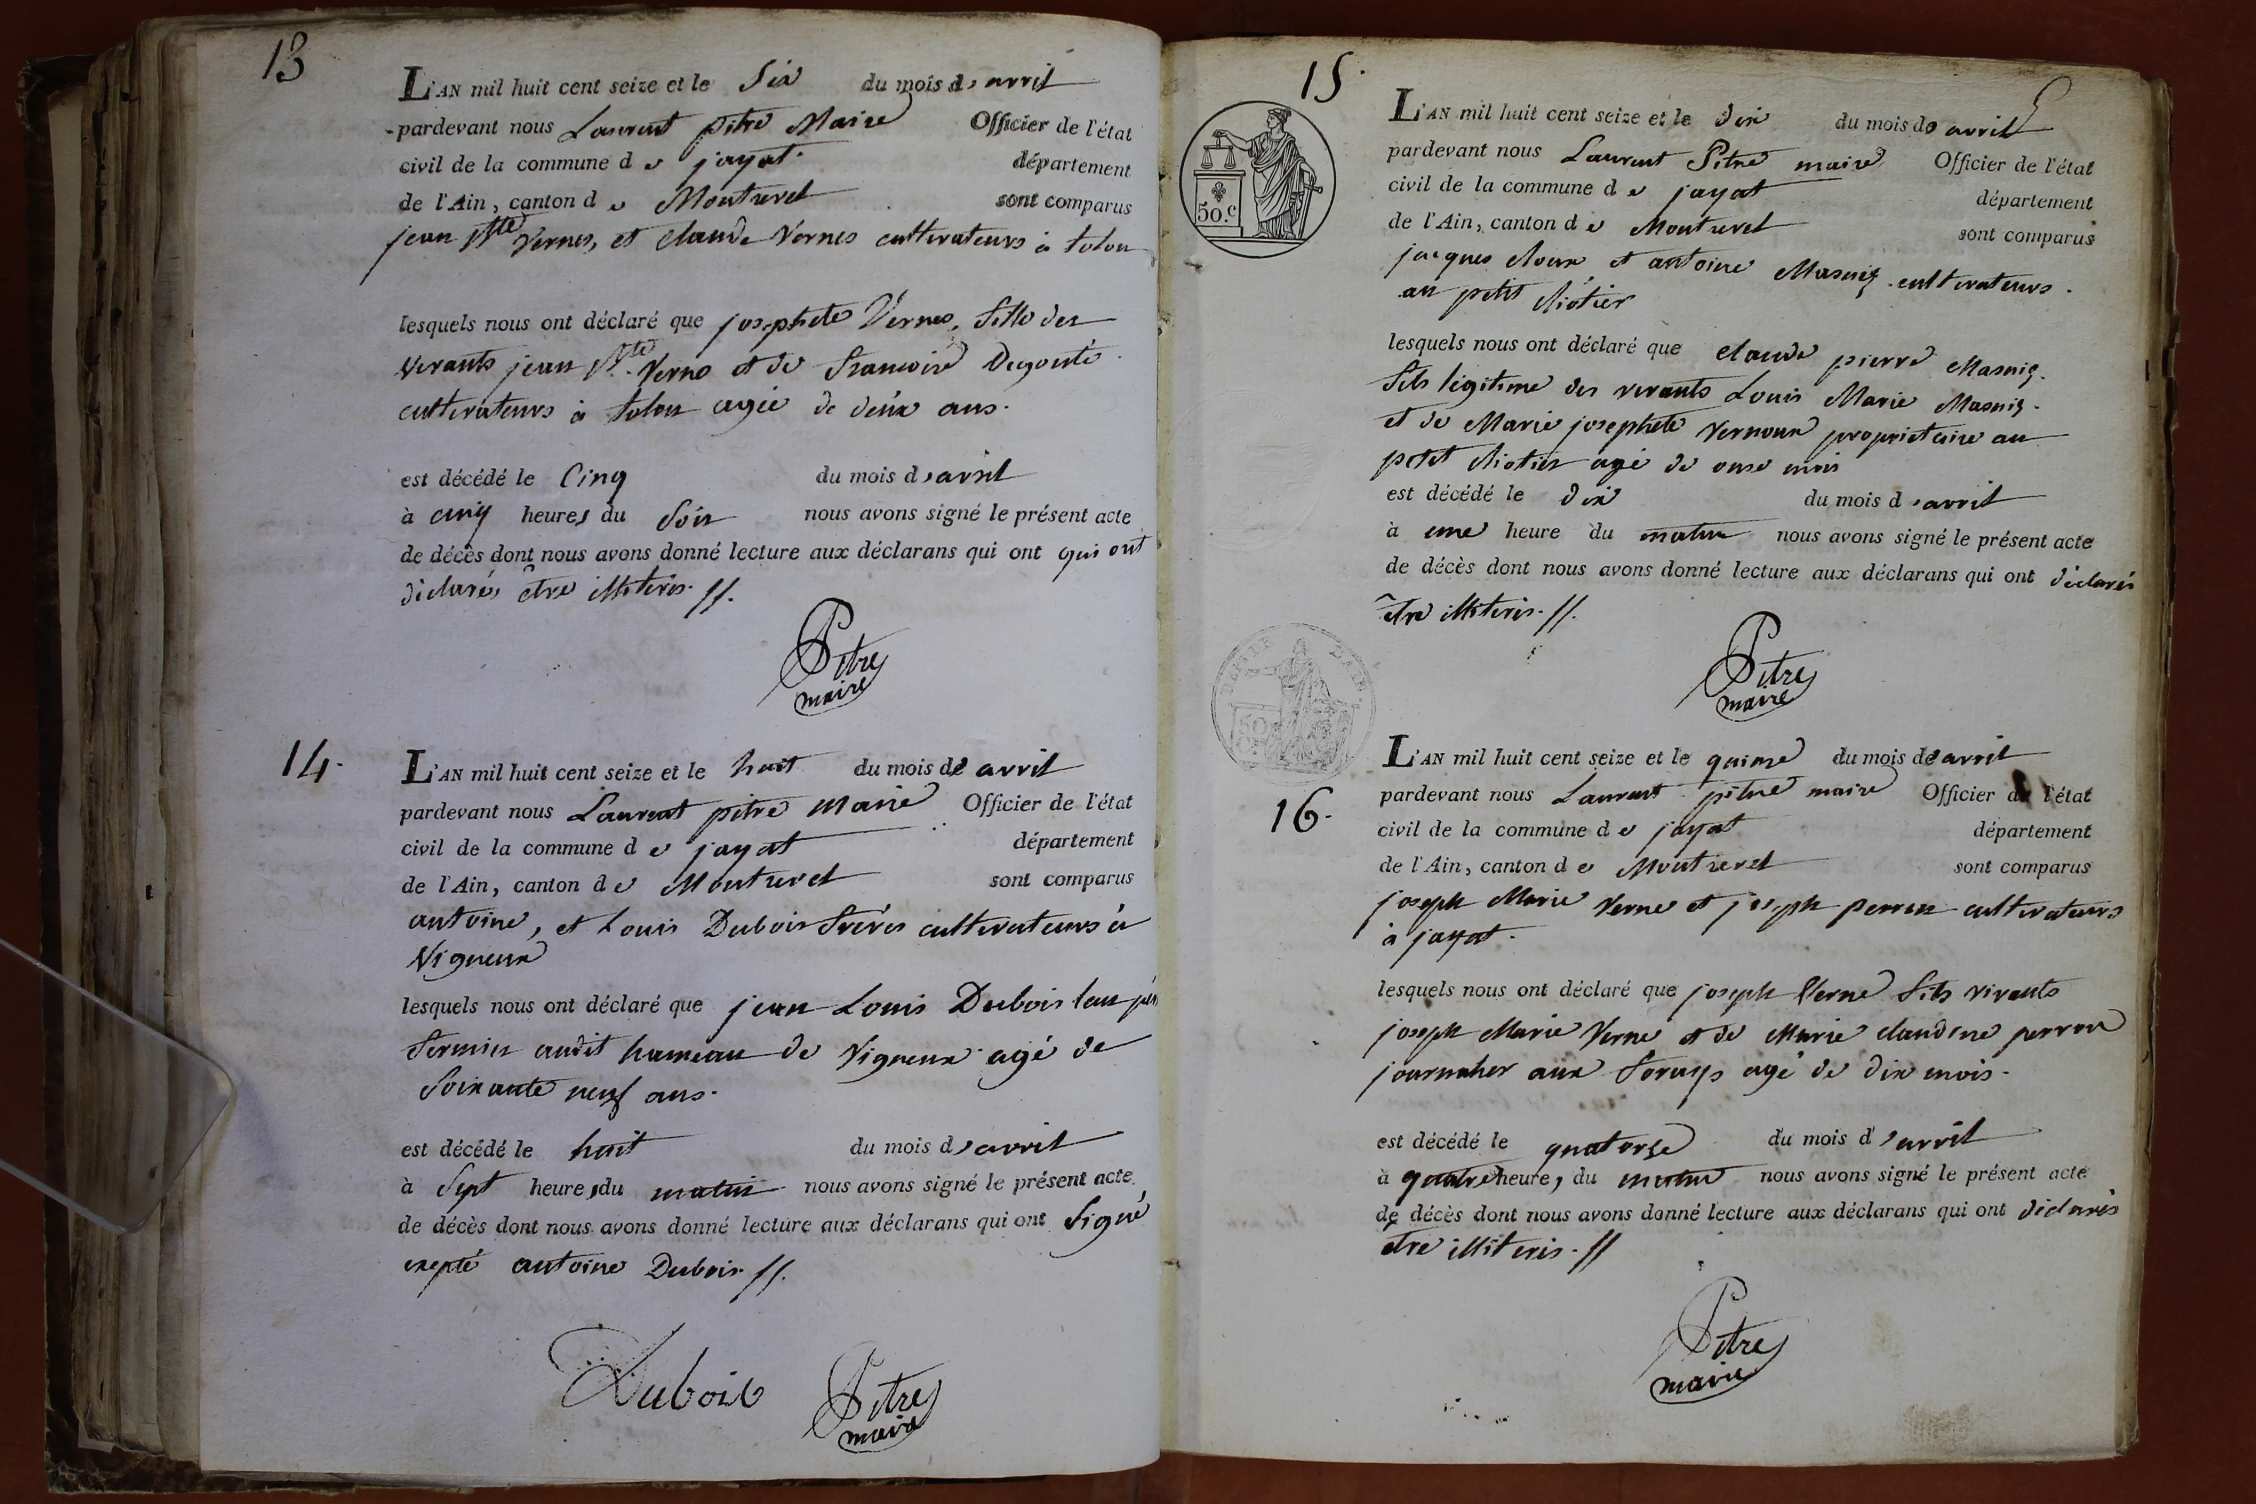 13
L'AN mil huit cent seize et le Six du mois d'avril
pardevant nous Laurent pitre Maire Officier de l'état
civil de la commune de jayat. département
de l'Ain, canton de Montrevel sont comparus
jean Bte Vernes, et Claude Vernes cultivateurs à tolon
lesquels nous ont déclaré que josephete Vernes, fille des
vivants jean Bte. Verne et de francoise Degoute
cultivateurs à tolon agée de deux ans.
est décédé le Cinq du mois d'avril
à cinq heures du Soir nous avons signé le présent acte
de décès dont nous avons donné lecture aux déclarans qui ont qui ont
déclarés être illiterés. //.
Pitre
maire
14.
L'AN mil huit cent seize et le huit du mois de avril
pardevant nous Laurent pitre maire Officier de l'état
civil de la commune de jayat département
de l'Ain, canton de Montrevel sont comparus
antoine, et Louis Dubois frères cultivateurs à
Vigneux
lesquels nous ont déclaré que jean Louis Dubois leur père
fermier audit hameau de Vigneux agé de
Soixante neuf ans.
est décédé le huit du mois d'avril
à Sept heures du matin nous avons signé le présent acte
de décès dont nous avons donné lecture aux déclarans qui ont Signé
exepté antoine Dubois //.
Dubois
Pitre
maire
15.
50.c
L'AN mil huit cent seize et le dix du mois de avril
pardevant nous Laurent Pitre maire Officier de l'état
civil de la commune de jayat département
de l'Ain, canton de Montrevel sont comparus
jacques cloux et antoine Masuis cultivateurs.
au petit cliotier
lesquels nous ont déclaré que claude pierre Masuis.
fils légitime des vivants Louis Marie Masuis.
et de Marie josephete Vernoux proprietaire au
petit cliotier agé de onse mois
est décédé le dix du mois d'avril
à une heure du matin nous avons signé le présent acte
de décès dont nous avons donné lecture aux déclarans qui ont déclarés
être illiterés. //.
Pitre
maire
16.
L'AN mil huit cent seize et le quinze du mois de avril
pardevant nous Laurent pitre maire Officier de l'état
civil de la commune de jayat département
de l'Ain, canton de Montrevel sont comparus
joseph Marie Verne et joseph perron cultivateurs
à jayat.
lesquels nous ont déclaré que joseph Verne fils vivants
joseph Marie Verne et de Marie claudine perron
journalier aux agé de dix mois.
est décédé le quatorze du mois d'avril
à quatre heures du matin nous avons signé le présent acte
de décès dont nous avons donné lecture aux déclarans qui ont déclarés
être illiterés. //
Pitre
maire